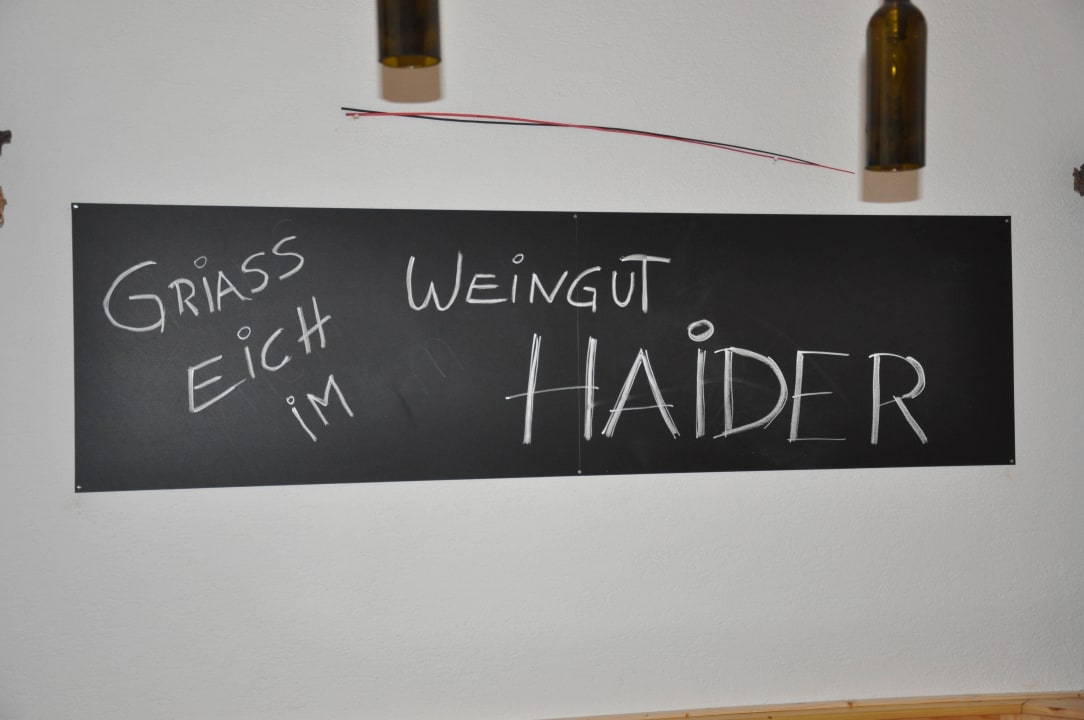 GRiASS
EiCH
iM
WEiNGUT
HAiDER